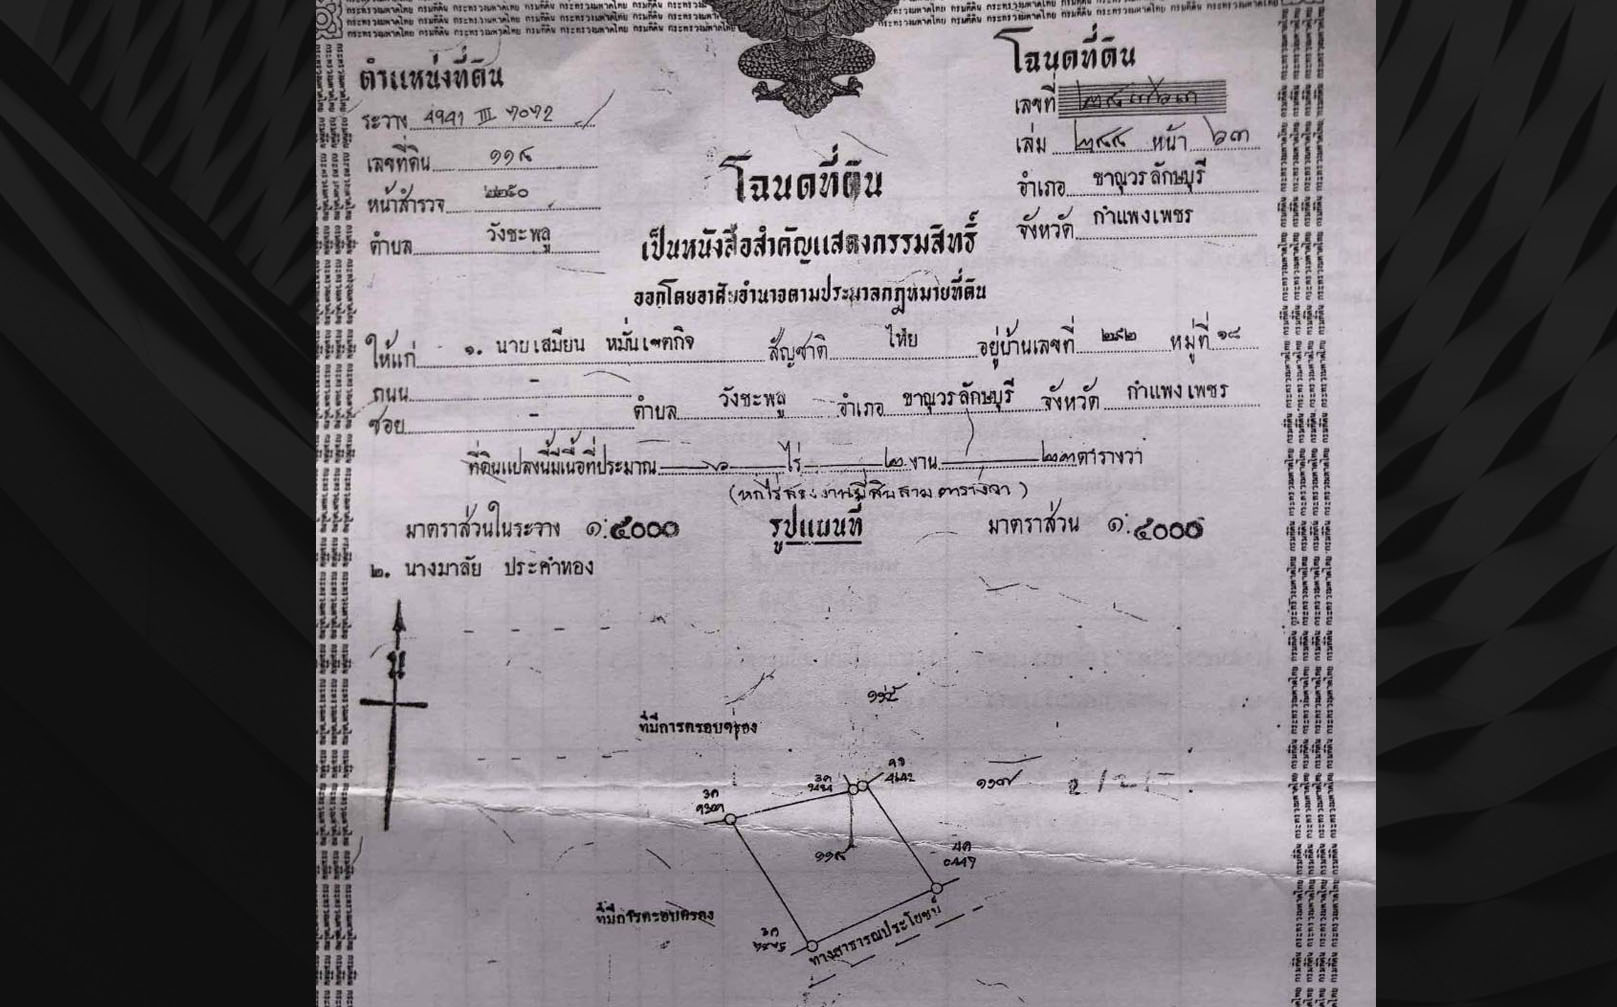 กรมที่ดิน กระทรวงมหาดไทย กรมที่ดิน กระทรวงมหาดไทย กรมที่ดิน กระทรวงมหาดไทย
ตำแหน่งที่ดิน
ระวาง 4941 III 7072
เลขที่ดิน ๑๑๘
หน้าสำรวจ ๒๒๕๐
ตำบล วังชะพลู
โฉนดที่ดิน
เลขที่
เล่ม ๒๔๔ หน้า ๖๓
อำเภอ ขาณุวรลักษบุรี
จังหวัด กำแพงเพชร
โฉนดที่ดิน
เป็นหนังสือสำคัญแสดงกรรมสิทธิ์
ออกโดยอาศัยอำนาจตามประมวลกฎหมายที่ดิน
ให้แก่ ๑. นายเสมียน หมั่นเขตกิจ สัญชาติ ไทย อยู่บ้านเลขที่ ๒๙๒ หมู่ที่ ๑๘
ถนน -
ซอย - ตำบล วังชะพลู อำเภอ ขาณุวรลักษบุรี จังหวัด กำแพงเพชร
ที่ดินแปลงนี้มีเนื้อที่ประมาณ ๖ ไร่ ๒ งาน ๒๓ ตารางวา
(หกไร่สองงานยี่สิบสามตารางวา)
มาตราส่วนในระวาง ๑:๕๐๐๐ รูปแผนที่ มาตราส่วน ๑:๔๐๐๐
๒. นางมาลัย ประคำทอง
น
ที่มีการครอบครอง
๑๑๗
๑๑๘
ที่มีการครอบครอง
ทางสาธารณประโยชน์